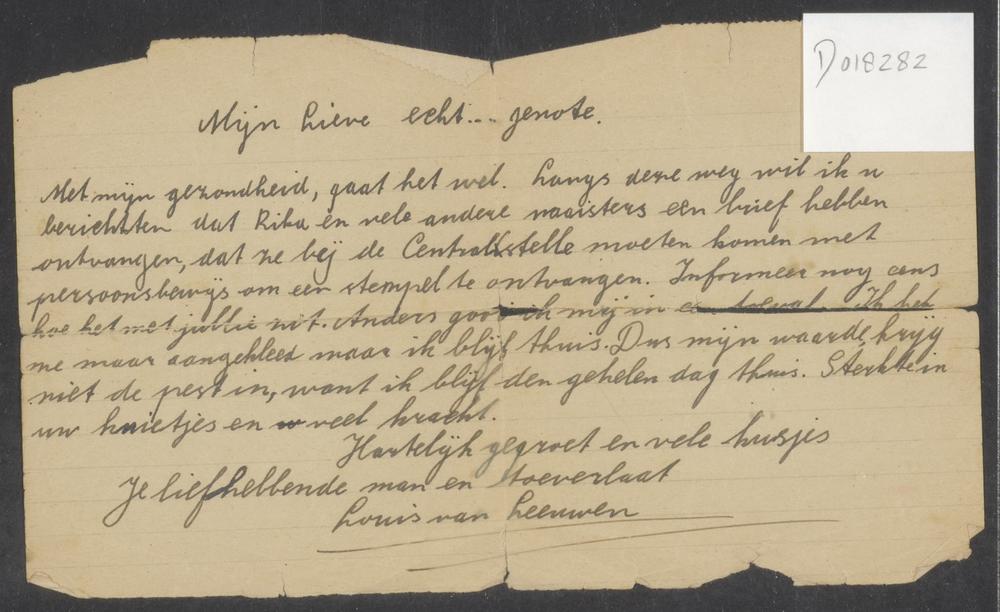 D018282
Mijn Lieve echt... genote.
Met mijn gezondheid, gaat het wel. Langs deze weg wil ik u
berichtten dat Rika en vele andere naaisters een brief hebben
ontvangen, dat ze bij de Centralstelle moeten komen met
persoonsbewijs om een stempel te ontvangen. Informeer nog eens
hoe het met jullie zit. Anders gooi ik mij in toeval. Ik heb
me maar aangekleed maar ik blijf thuis. Dus mijn waarde, krijg
niet de pest in, want ik blijf den gehelen dag thuis. Sterkte in
uw knietjes en veel kracht.
Hartelijk gegroet en vele kusjes
Je liefhebbende man en toeverlaat
Louis van Leeuwen